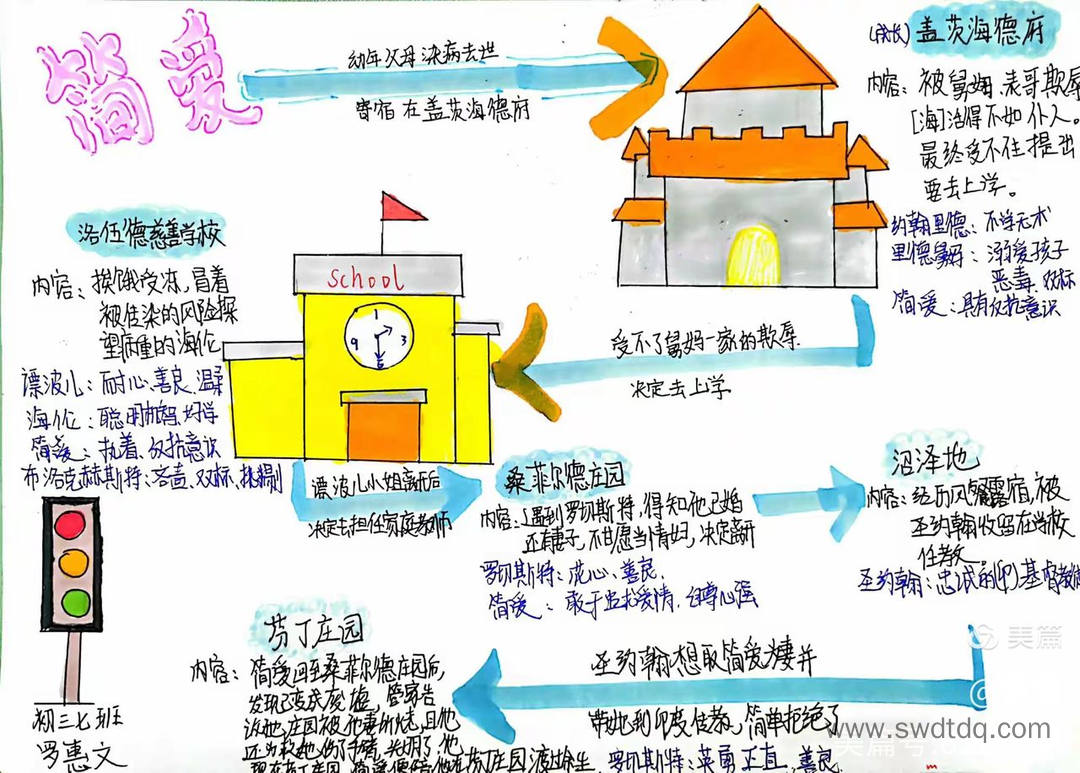 简爱
幼年父母染病去世
寄宿在盖茨海德府
(成长) 盖茨海德府
内容：被舅妈、表哥欺辱
[海]活得不如仆人。
最终受不住提出
要去上学。
约翰里德：不学无术
里德舅妈：溺爱孩子
恶毒、双标
简爱：具有反抗意识
受不了舅妈一家的欺辱
决定去上学
洛伍德慈善学校
内容：挨饿受冻，冒着
被传染的风险探
望病重的海伦
谭波儿：耐心、善良、温柔
海伦：聪明机智、好学
简爱：执着、反抗意识
布洛克赫斯特：吝啬、双标、挑剔
school
1
9 3
6
谭波儿小姐离开后
决定去担任家庭教师
桑菲尔德庄园
内容：遇到罗切斯特，得知他已婚
还有妻子，不甘愿当情妇，决定离开
罗切斯特：花心、善良
简爱：敢于追求爱情、自尊心强
沼泽地
内容：经历风餐露宿，被
圣约翰收留在学校
任教
圣约翰：忠诚的基督教
圣约翰想取简爱为妻并
带她到印度任教，简单拒绝了
芬丁庄园
内容：简爱回至桑菲尔德庄园后，
发现已变成废墟，管家告
诉她，庄园被他妻所烧，且他
还为救她，伤了胳膊，失明了，他
现在芬丁庄园，简爱便陪他在芬丁庄园渡过余生
罗切斯特：英勇、正直、善良
初三七班
罗惠文
美篇
www.swdtdq.com
美篇号